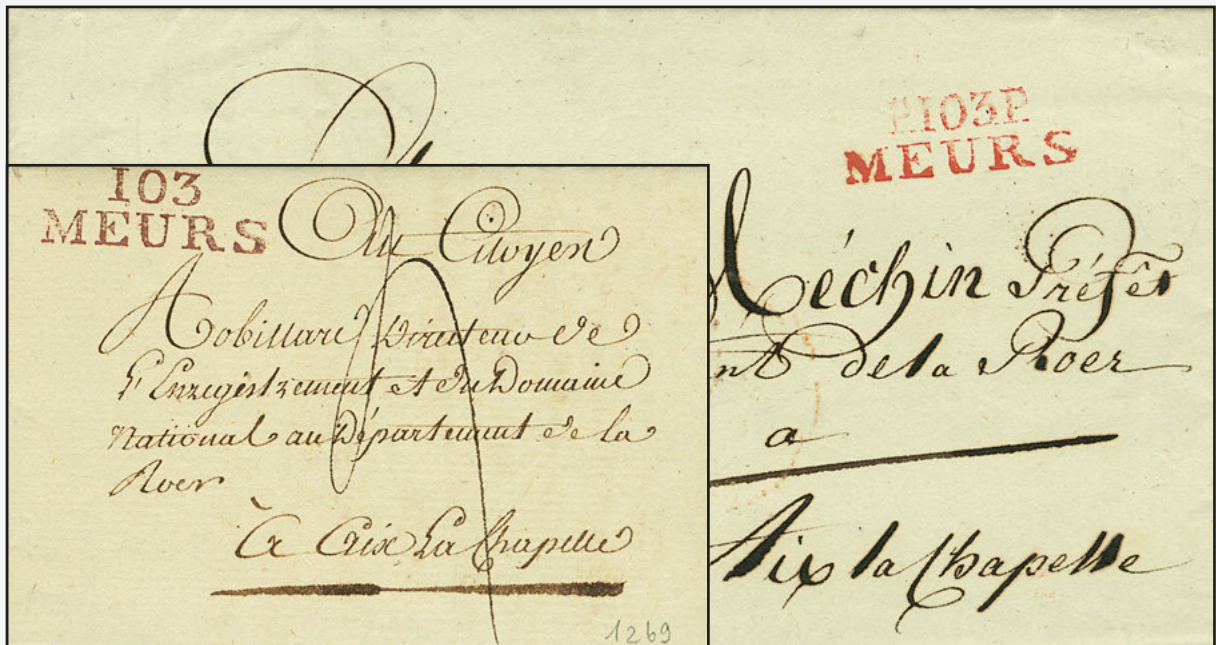 P.103.P.
MEURS
Méchin Préfet
de la Roer
a
Aix la Chapelle
103
MEURS
Au Citoyen
Robillard Directeur de
l'Enregistrement et du Domaine
National au Département de la
Roer
à Aix La Chapelle
1269